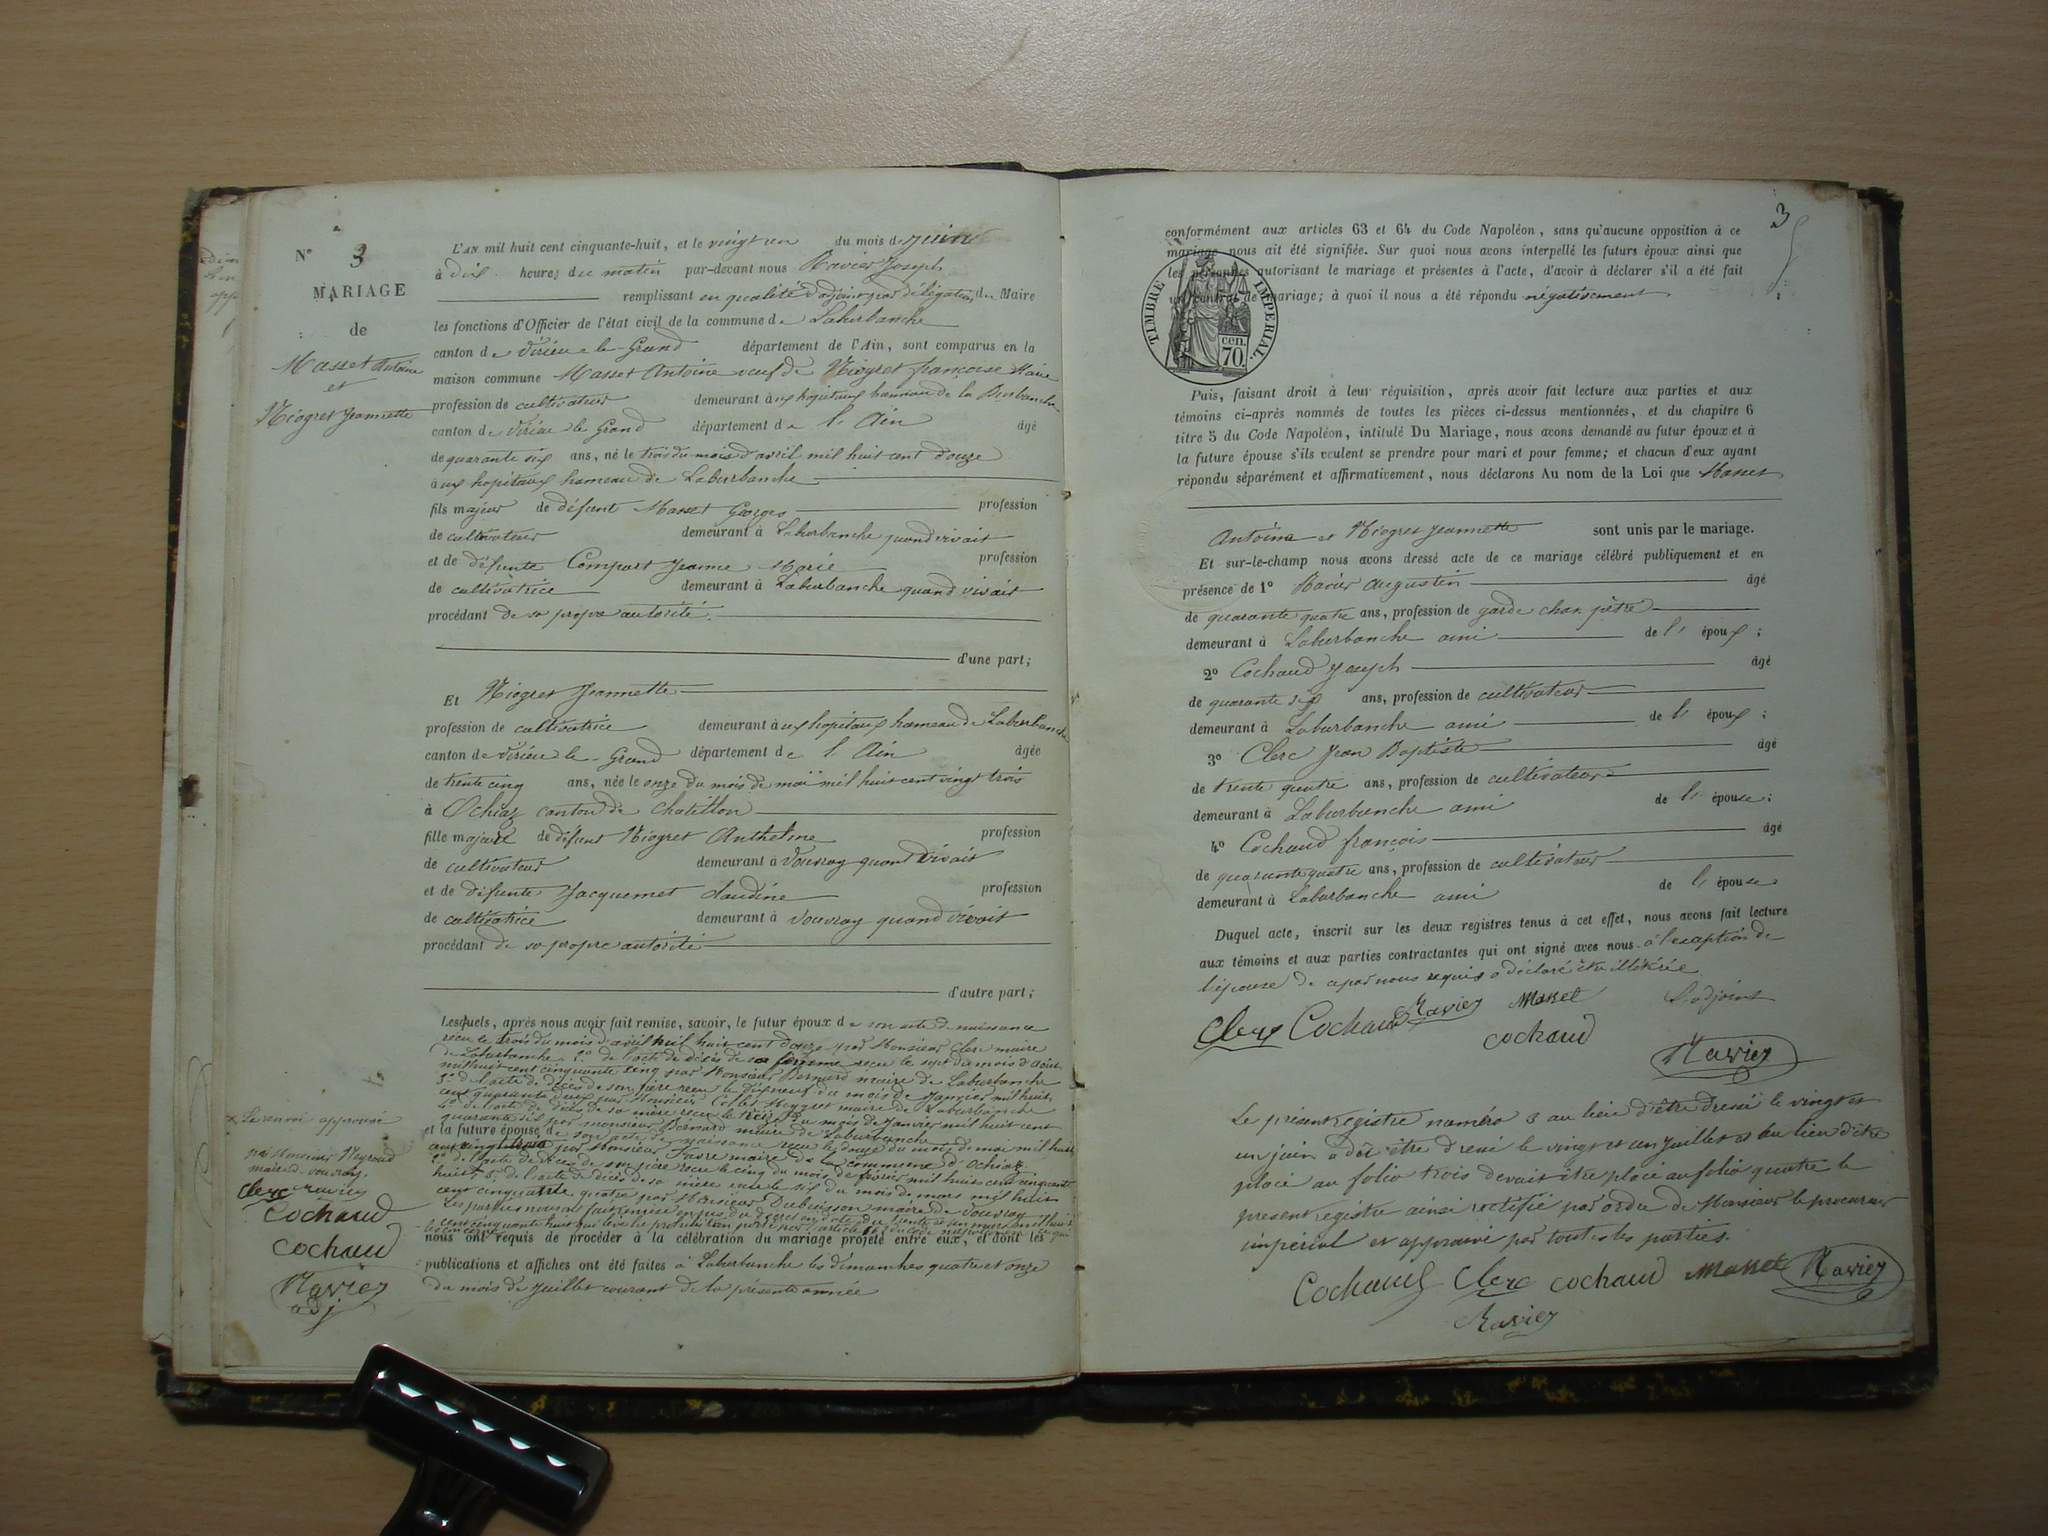 N° 3
MARIAGE
de
Masset Antoine
et
Niogret Jeannette
L'AN mil huit cent cinquante-huit, et le vingt un du mois de juin
à dix heures du matin par-devant nous Ravier Joseph
remplissant en qualité d'adjoint par délégation du Maire
les fonctions d'Officier de l'état civil de la commune de Laburbanche
canton de Virieu le Grand département de l'Ain, sont comparus en la
maison commune Masset Antoine veuf de Niogret françoise Marie
profession de cultivateur demeurant aux hopitaux hameau de la Burbanche
canton de Virieu le Grand département de l'Ain âgé
de quarante six ans, né le trois du mois d'avril mil huit cent douze
aux hopitaux hameau de Laburbanche
fils majeur de défunt Masset Georges profession
de cultivateur demeurant à Laburbanche quand vivait
et de défunte Compart Jeanne Marie profession
de cultivatrice demeurant à Laburbanche quand vivait
procédant de sa propre autorité.
d'une part;
Et Niogret Jeannette
profession de cultivatrice demeurant aux hopitaux hameau de Laburbanche
canton de Virieu le Grand département de l'Ain âgée
de trente cinq ans, née le onze du mois de mai mil huit cent vingt trois
à Ochiaz canton de Chatillon
fille majeure de défunt Niogret Anthelme profession
de cultivateur demeurant à Vouvray quand vivait
et de défunte Jacquemet claudine profession
de cultivatrice demeurant à Vouvray quand vivait
procédant de sa propre autorité
d'autre part;
Lesquels, après nous avoir fait remise, savoir, le futur époux de son acte de naissance
recu le trois du mois d'avril mil huit cent douze par Monsieur Clerc maire
de Laburbanche 2° de l'acte de décès de sa femme recu le sept du mois d'août
mil huit cent cinquante cinq par Monsieur Bernard maire de Laburbanche
3° de l'acte de décès de son père recu le dix neuf du mois de Janvier mil huit
cent quarante deux par Monsieur maire de Laburbanche
4° de l'acte de décès de sa mère recu le du mois de Janvier mil huit cent
quarante six par monsieur Bernard maire de Laburbanche
et la future épouse de son acte de naissance recu le douze du mois de mai mil huit
cent vingt trois par Monsieur Favre maire de la commune d'Ochiaz
2° de l'acte de décès de son père recu le cinq du mois de février mil huit cent cinquante
huit 3° de l'acte de décès de sa mère recu le six du mois de mars mil huit
cent cinquante quatre par Monsieur Dubuisson maire de Vouvray
Les parties nous ont fait remise en plus du decret en date du trente et un mars mil huit
cent cinquante huit qui lève la prohibition portée par l'article du code
nous ont requis de procéder à la célébration du mariage projeté entre eux, et dont les
publications et affiches ont été faites à Laburbanche les dimanches quatre et onze
du mois de Juillet courant de la présente année
x Le renvoi approuvé
Monsieur Neyroud
maire de Vouvray.
Clerc Ravier
Cochaud
Cochaud
Ravier
adj
3
conformément aux articles 63 et 64 du Code Napoléon, sans qu'aucune opposition à ce
mariage nous ait été signifiée. Sur quoi nous avons interpellé les futurs époux ainsi que
les personnes autorisant le mariage et présentes à l'acte, d'avoir à déclarer s'il a été fait
un contrat de mariage; à quoi il nous a été répondu négativement
TIMBRE IMPERIAL.
70 cen.
Puis, faisant droit à leur réquisition, après avoir fait lecture aux parties et aux
témoins ci-après nommés de toutes les pièces ci-dessus mentionnées, et du chapitre 6
titre 5 du Code Napoléon, intitulé Du Mariage, nous avons demandé au futur époux et à
la future épouse s'ils veulent se prendre pour mari et pour femme; et chacun d'eux ayant
répondu séparément et affirmativement, nous déclarons Au nom de la Loi que Masset
Antoine et Niogret Jeannette sont unis par le mariage.
Et sur-le-champ nous avons dressé acte de ce mariage célébré publiquement et en
présence de 1° Ravier augustin âgé
de quarante quatre ans, profession de garde champêtre
demeurant à Laburbanche ami de l' époux;
2° Cochaud Joseph âgé
de quarante six ans, profession de cultivateur
demeurant à Laburbanche ami de l' époux;
3° Clerc Jean Baptiste âgé
de trente quatre ans, profession de cultivateur
demeurant à Laburbanche ami de l' épouse;
4° Cochaud françois âgé
de quarante quatre ans, profession de cultivateur
demeurant à Laburbanche ami de l' épouse
Duquel acte, inscrit sur les deux registres tenus à cet effet, nous avons fait lecture
aux témoins et aux parties contractantes qui ont signé avec nous à l'exception de
l'épouse de a par nous requis a déclaré être illétérée
Clerc Cochaud Ravier Masset L'adjoint
Cochaud
Ravier
Le présent registre numéro 3 au lieu d'être dressé le vingt et
un juin a dû être dressé le vingt et un Juillet et au lieu d'être
placé au folio trois devait être placé au folio quatre le
present registre ainsi rectifié par ordre de Monsieur le procureur
impérial et approuvé par toutes les parties.
Cochaud Clerc Cochaud Masset Ravier
Ravier